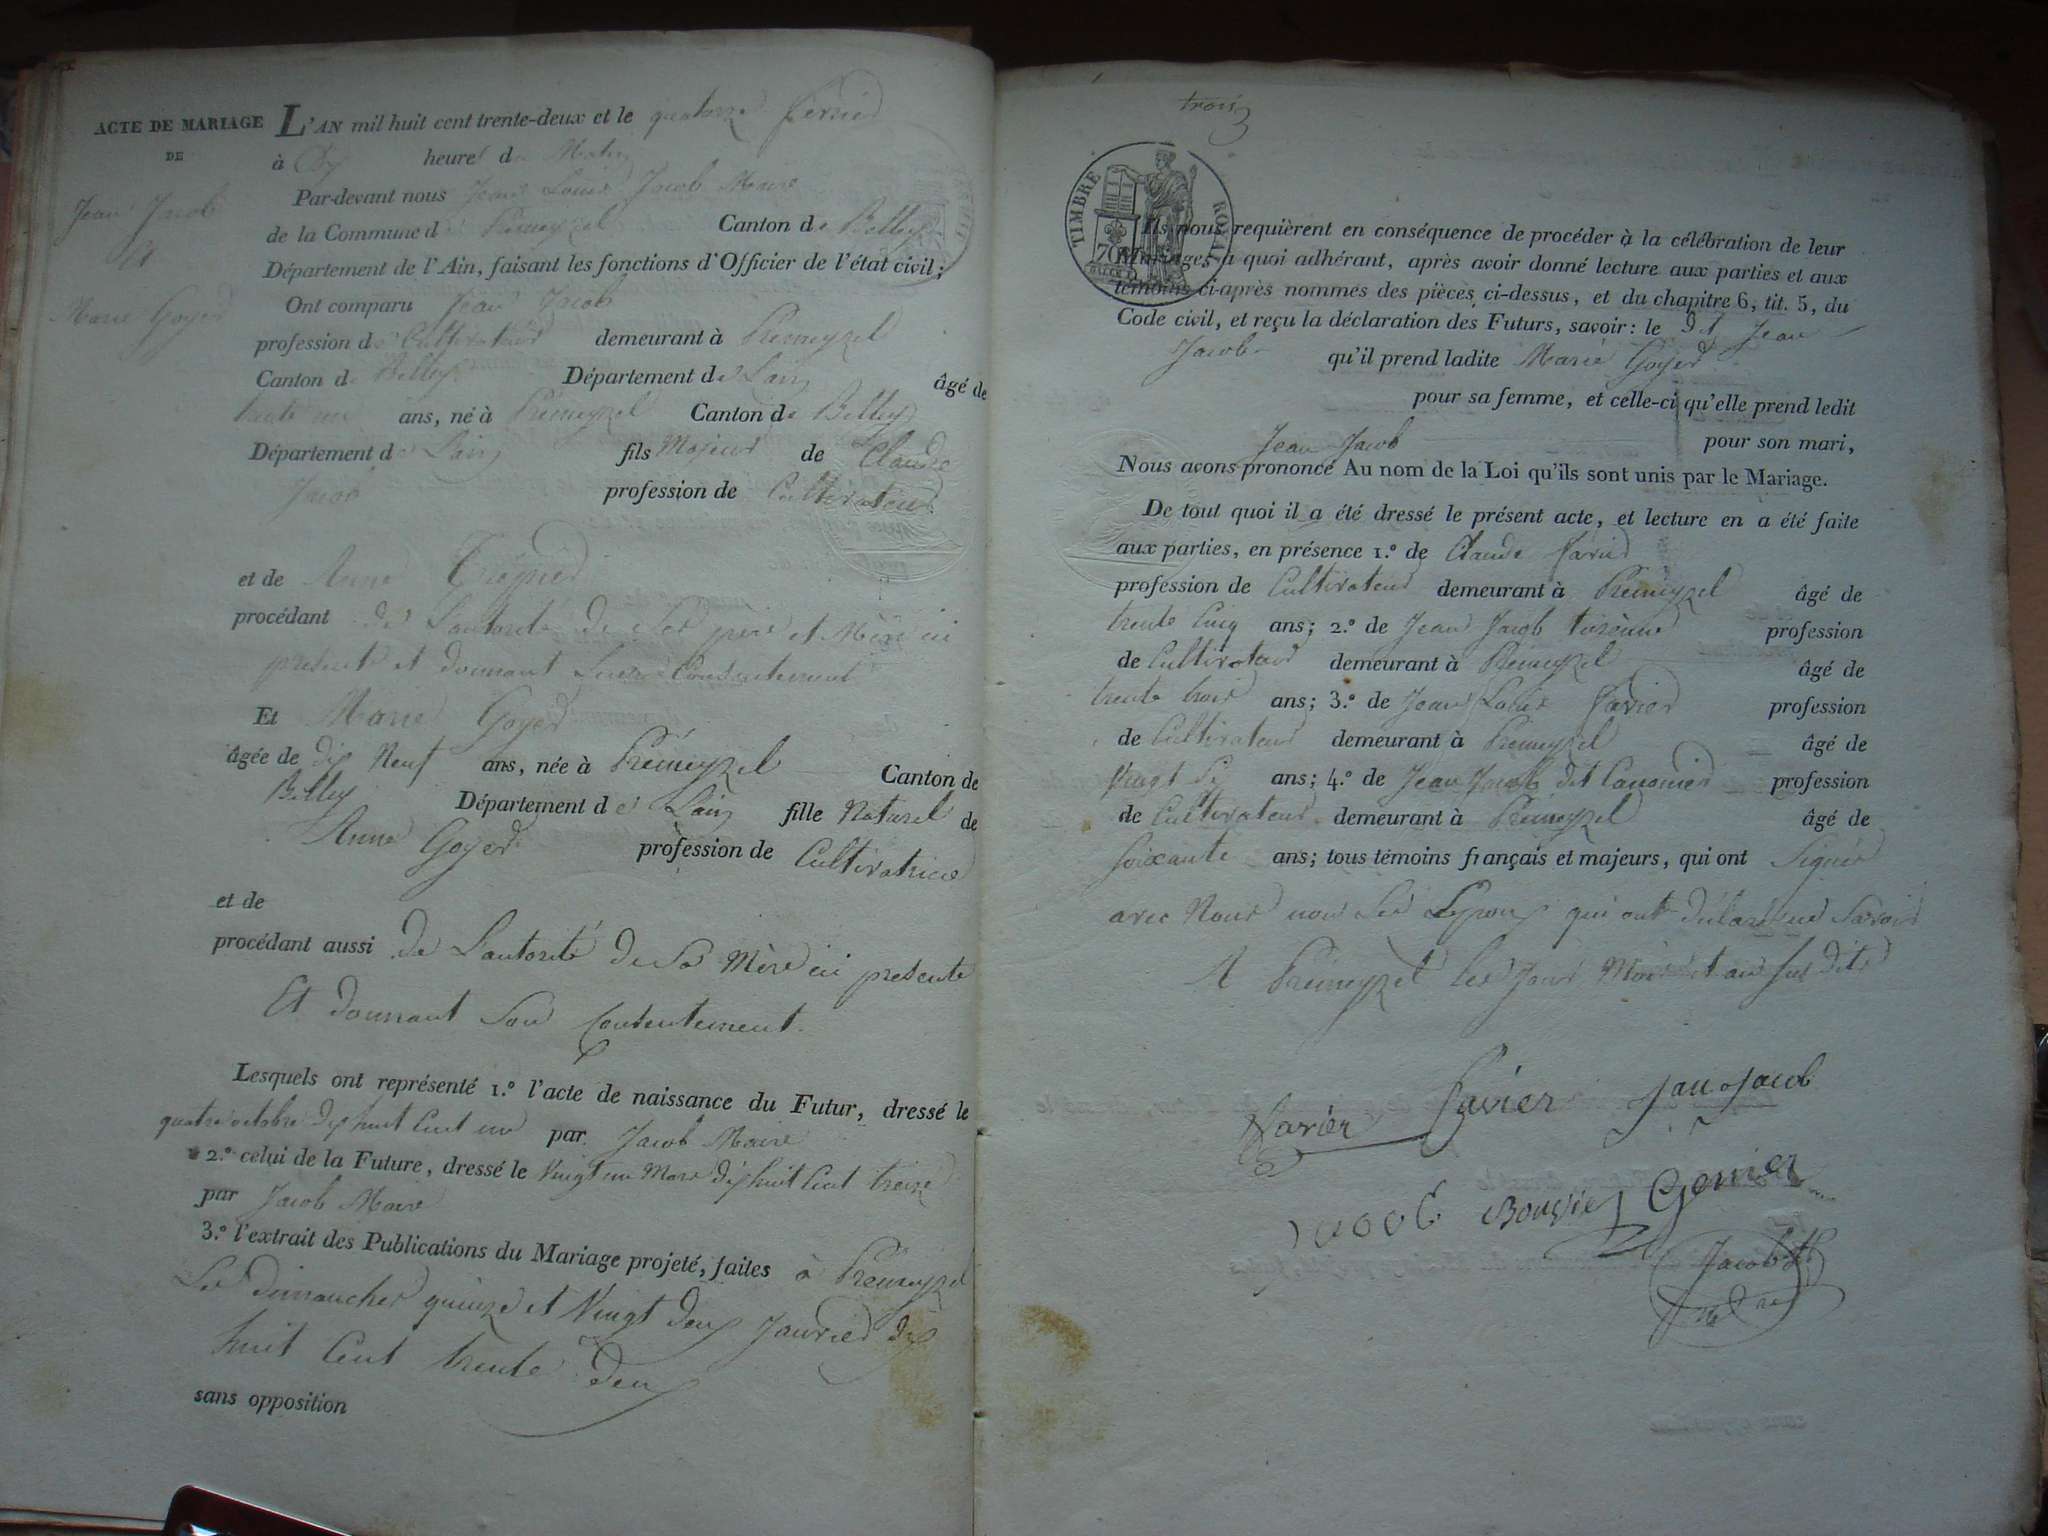 ACTE DE MARIAGE
DE
Jean Jacob
et
Marie Goyer
L'AN mil huit cent trente-deux et le quatorze fevrier
à dix heures du Matin
Par-devant nous Jean Louis Jacob Maire
de la Commune de Prémeyzel Canton de Belley
Département de l'Ain, faisant les fonctions d'Officier de l'état civil;
Ont comparu Jean Jacob
profession de Cultivateur demeurant à Prémeyzel
Canton de Belley Département de Lain âgé de
trente un ans, né à Prémeyzel Canton de Belley
Département de Lain fils Majeur de Claude
Jacob profession de Cultivateur
et de Anne
procédant de Lautorité de Ses père et Mère ici
présents et donnant Leurs Consentement
Et Marie Goyer
âgée de dix Neuf ans, née à Prémeyzel Canton de
Belley Département de Lain fille Naturel de
Anne Goyer profession de Cultivatrice
et de
procédant aussi de Lautorité de Sa Mère ici présente
Et donnant Son Consentement.
Lesquels ont représenté 1.º l'acte de naissance du Futur, dressé le
quatre octobre dix huit Cent un par Jacob Maire
2.º celui de la Future, dressé le Vingt un Mars dix huit Cent treize
par Jacob Maire
3.º l'extrait des Publications du Mariage projeté, faites à Prémeyzel
Les dimanches quinze et Vingt deux Janvier dix
huit Cent trente deux
sans opposition
trois
3
TIMBRE ROYAL
70
Ils nous requièrent en conséquence de procéder à la célébration de leur
Mariage, à quoi adhérant, après avoir donné lecture aux parties et aux
témoins ci-après nommés des pièces ci-dessus, et du chapitre 6, tit. 5, du
Code civil, et reçu la déclaration des Futurs, savoir: le dt Jean
Jacob qu'il prend ladite Marie Goyer
pour sa femme, et celle-ci qu'elle prend ledit
Jean Jacob pour son mari,
Nous avons prononcé Au nom de la Loi qu'ils sont unis par le Mariage.
De tout quoi il a été dressé le présent acte, et lecture en a été faite
aux parties, en présence 1.º de Claude Favier
profession de Cultivateur demeurant à Prémeyzel âgé de
trente Cinq ans; 2.º de Jean Jacob turenne profession
de Cultivateur demeurant à Prémeyzel âgé de
trente trois ans; 3.º de Jean Louis Favier profession
de Cultivateur demeurant à Prémeyzel âgé de
Vingt Six ans; 4.º de Jean Jacob dit Canonier profession
de Cultivateur demeurant à Prémeyzel âgé de
soixante ans; tous témoins français et majeurs, qui ont Signés
avec Nous non Les Epoux qui ont déclaré ne Savoir
A Prémeyzel les Jour Mois et an sus dits
Favier Favier Jau Jacob
Jacob
Jacob